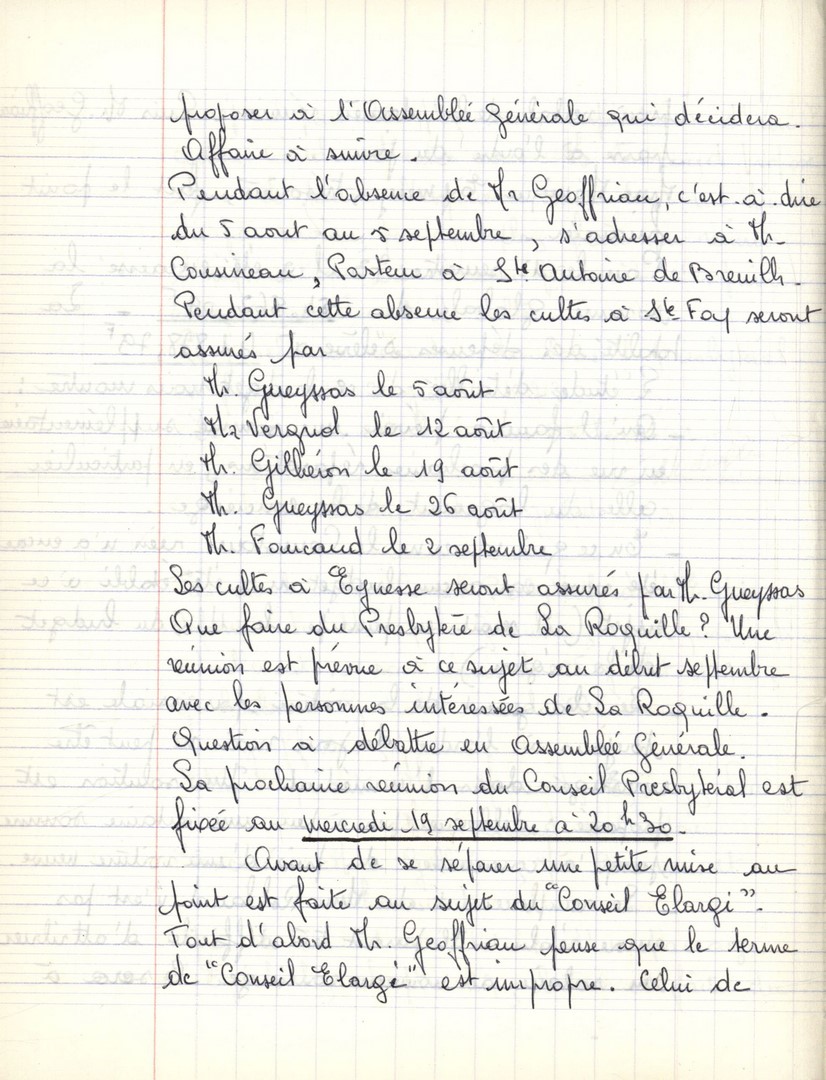 proposer à l'Assemblée générale qui décidera.
Affaire à suivre.
Pendant l'absence de Mr Geoffriau, c'est.à.dire
du 5 aout au 5 septembre, s'adresser à M.
Cousineau, Pasteur à Ste Antoine de Breuilh.
Pendant cette absence les cultes à Ste Foy seront
assurés par
M. Gueyssas le 5 août
Mr Vergnol le 12 août
M. Gilliéron le 19 août
M. Gueyssas le 26 août
M. Foucaud le 2 septembre
Les cultes à Eynesse seront assurés par M. Gueyssas
Que faire du Presbytère de La Roquille? Une
réunion est prévue à ce sujet au début septembre
avec les personnes intéressées de La Roquille.
Question à débattre en Assemblée Générale.
La prochaine réunion du Conseil Presbytéral est
fixée au mercredi 19 septembre à 20h30.
Avant de se séparer une petite mise au
point est faite au sujet du "Conseil Elargi".
Tout d'abord M. Geoffriau pense que le terme
de "Conseil Elargi" est impropre. Celui de